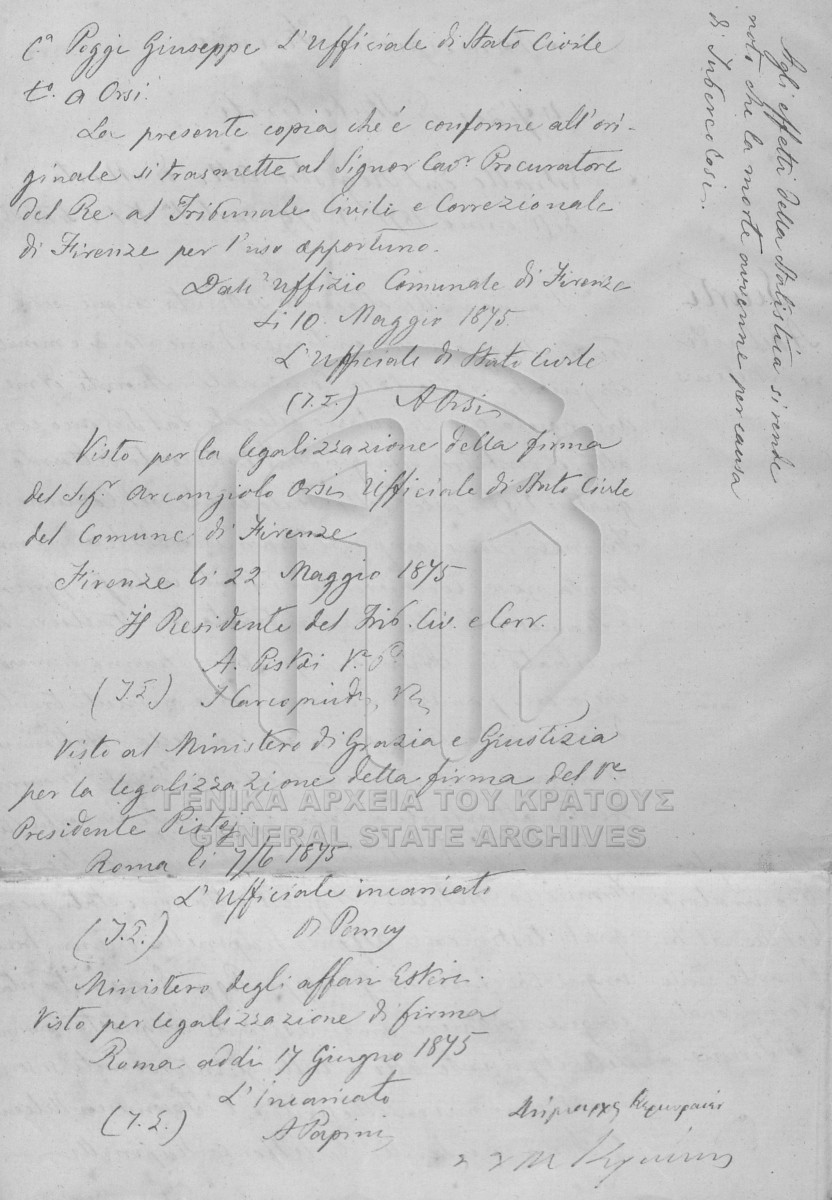 Cª Poggi Giuseppe L'Ufficiale di Stato Civile
tº. A Orsi.
La presente copia che é conforme all'ori-
ginale si trasmette al Signor Cavr Procuratore
del Re al Tribunale Civile e Correzionale
di Firenze per l'uso opportuno.
Dall'Uffizio Comunale di Firenze
Li 10. Maggio 1875
L'Ufficiale di Stato Civile
A Orsi
Visto per la legalizzazione della firma
del Sigr. Arcangiolo Orsi Ufficiale di Stato Civile
del Comune di Firenze
Firenze li 22 Maggio 1875
Il Residente del Trib. Civ. e Corr.
A.
Visto al Ministero di Grazia e Giustizia
per la legalizzazione della firma del Ve
Presidente
Roma li 7/6 1875
L'Ufficiale incaricato
Ministero degli affari Esteri.
Visto per legalizzazione di firma
Roma addi 17 Giugno 1875
L'incaricato
A Papini
Δήμαρχος Κερκυραίων
Agli effetti della Statistica si rende
noto che la morte avvenne per causa
di Tubercolosi.
ΓΕΝΙΚΑ ΑΡΧΕΙΑ ΤΟΥ ΚΡΑΤΟΥΣ
GENERAL STATE ARCHIVES